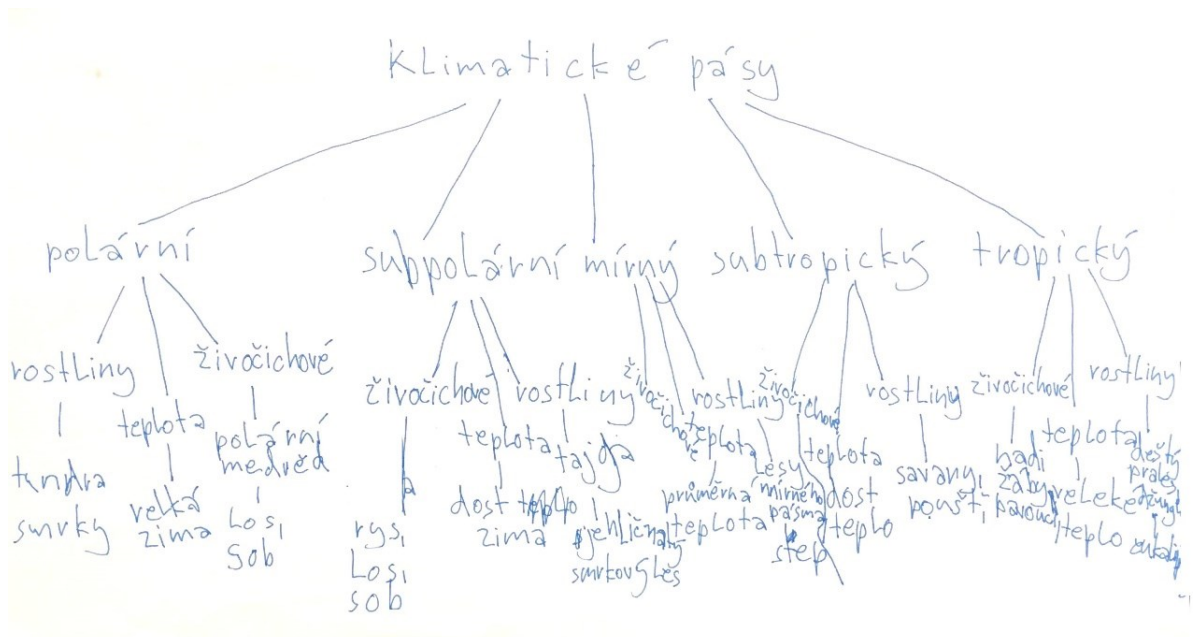 Klimatické pásy
polární
subpolární
mírný
subtropický
tropický
rostliny
tundra
smrky
teplota
velká
zima
živočichové
polární
medvěd
los,
sob
živočichové
rys,
los,
sob
teplota
dost
zima
rostliny
tajga
jehličnatý
smrkový les
živočichové
teplota
průměrná
teplota
rostliny
lesy
mírného
pásma
step
živočichové
teplota
dost
teplo
rostliny
savany,
poušť,
živočichové
hadi
žáby
pavouci
teplota
veleké
teplo
rostliny
deštný
prales
džungle